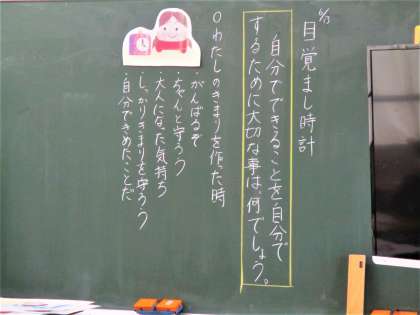 6/13
目覚まし時計
自分でできることを自分で
するために大切な事は、何でしょう。
○わたしのきまりを作った時
・がんばるぞ
・ちゃんと守ろう
・大人になった気持ち
・しっかりきまりを守ろう
・自分できめたことだ